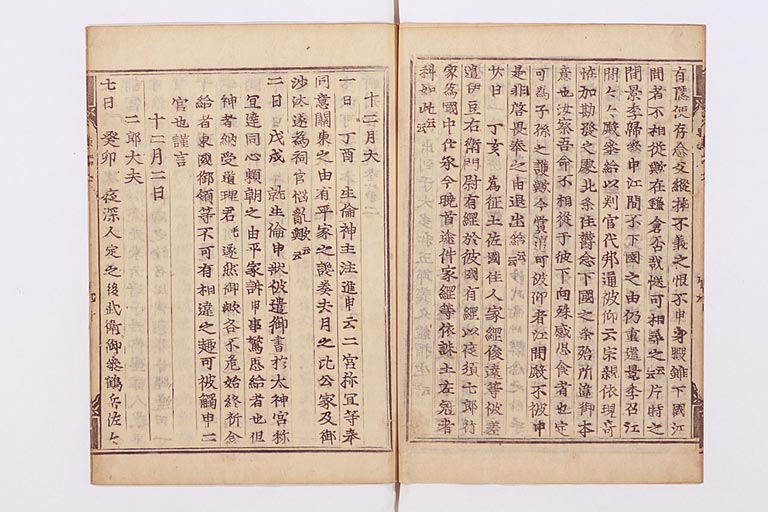 有隱便存念父縱挿不義之恨不申身暇雖下國江
間者不相從歟在鎌倉否哉慥可相尋之云々片時之
間景季歸參申江間不下國之由仍重遣景季召江
間々々殿參給以判官代邦通被仰云宗親依現奇
恠加勘發之處北条住欝念下國之条殆所違御本
意也汝察吾命不相從于彼下向殊感思食者也定
可爲子孫之護歟今賞追可被仰者江間殿不被申
是非啓畏奉之由退出給云々
廿日丁亥爲征土佐國住人家經俊遠等被差
遣伊豆右衛門尉有經於彼國有經以夜須七郎行
家爲國中仕承今曉首途件家經等依誅土左冠者
科如此云々
十二月大
一日丁酉生倫神主注進申云二宮祢冝等奉
同意關東之由有平家之讒奏去月之比公家及御
沙汰遂爲祠官惱亂歟云々
二日戊戌就生倫申狀被遣御書於太神宮祢
冝達同心頼朝之由平家訴申事驚思給者也但
神者納受道理君毛遂照御歟各不危始終祈念
給者東國御領等不可有相違之趣可被觸申二
官也謹言
十二月二日
二郎大夫
七日癸卯夜深人定之後武衛御參鶴岳佐々